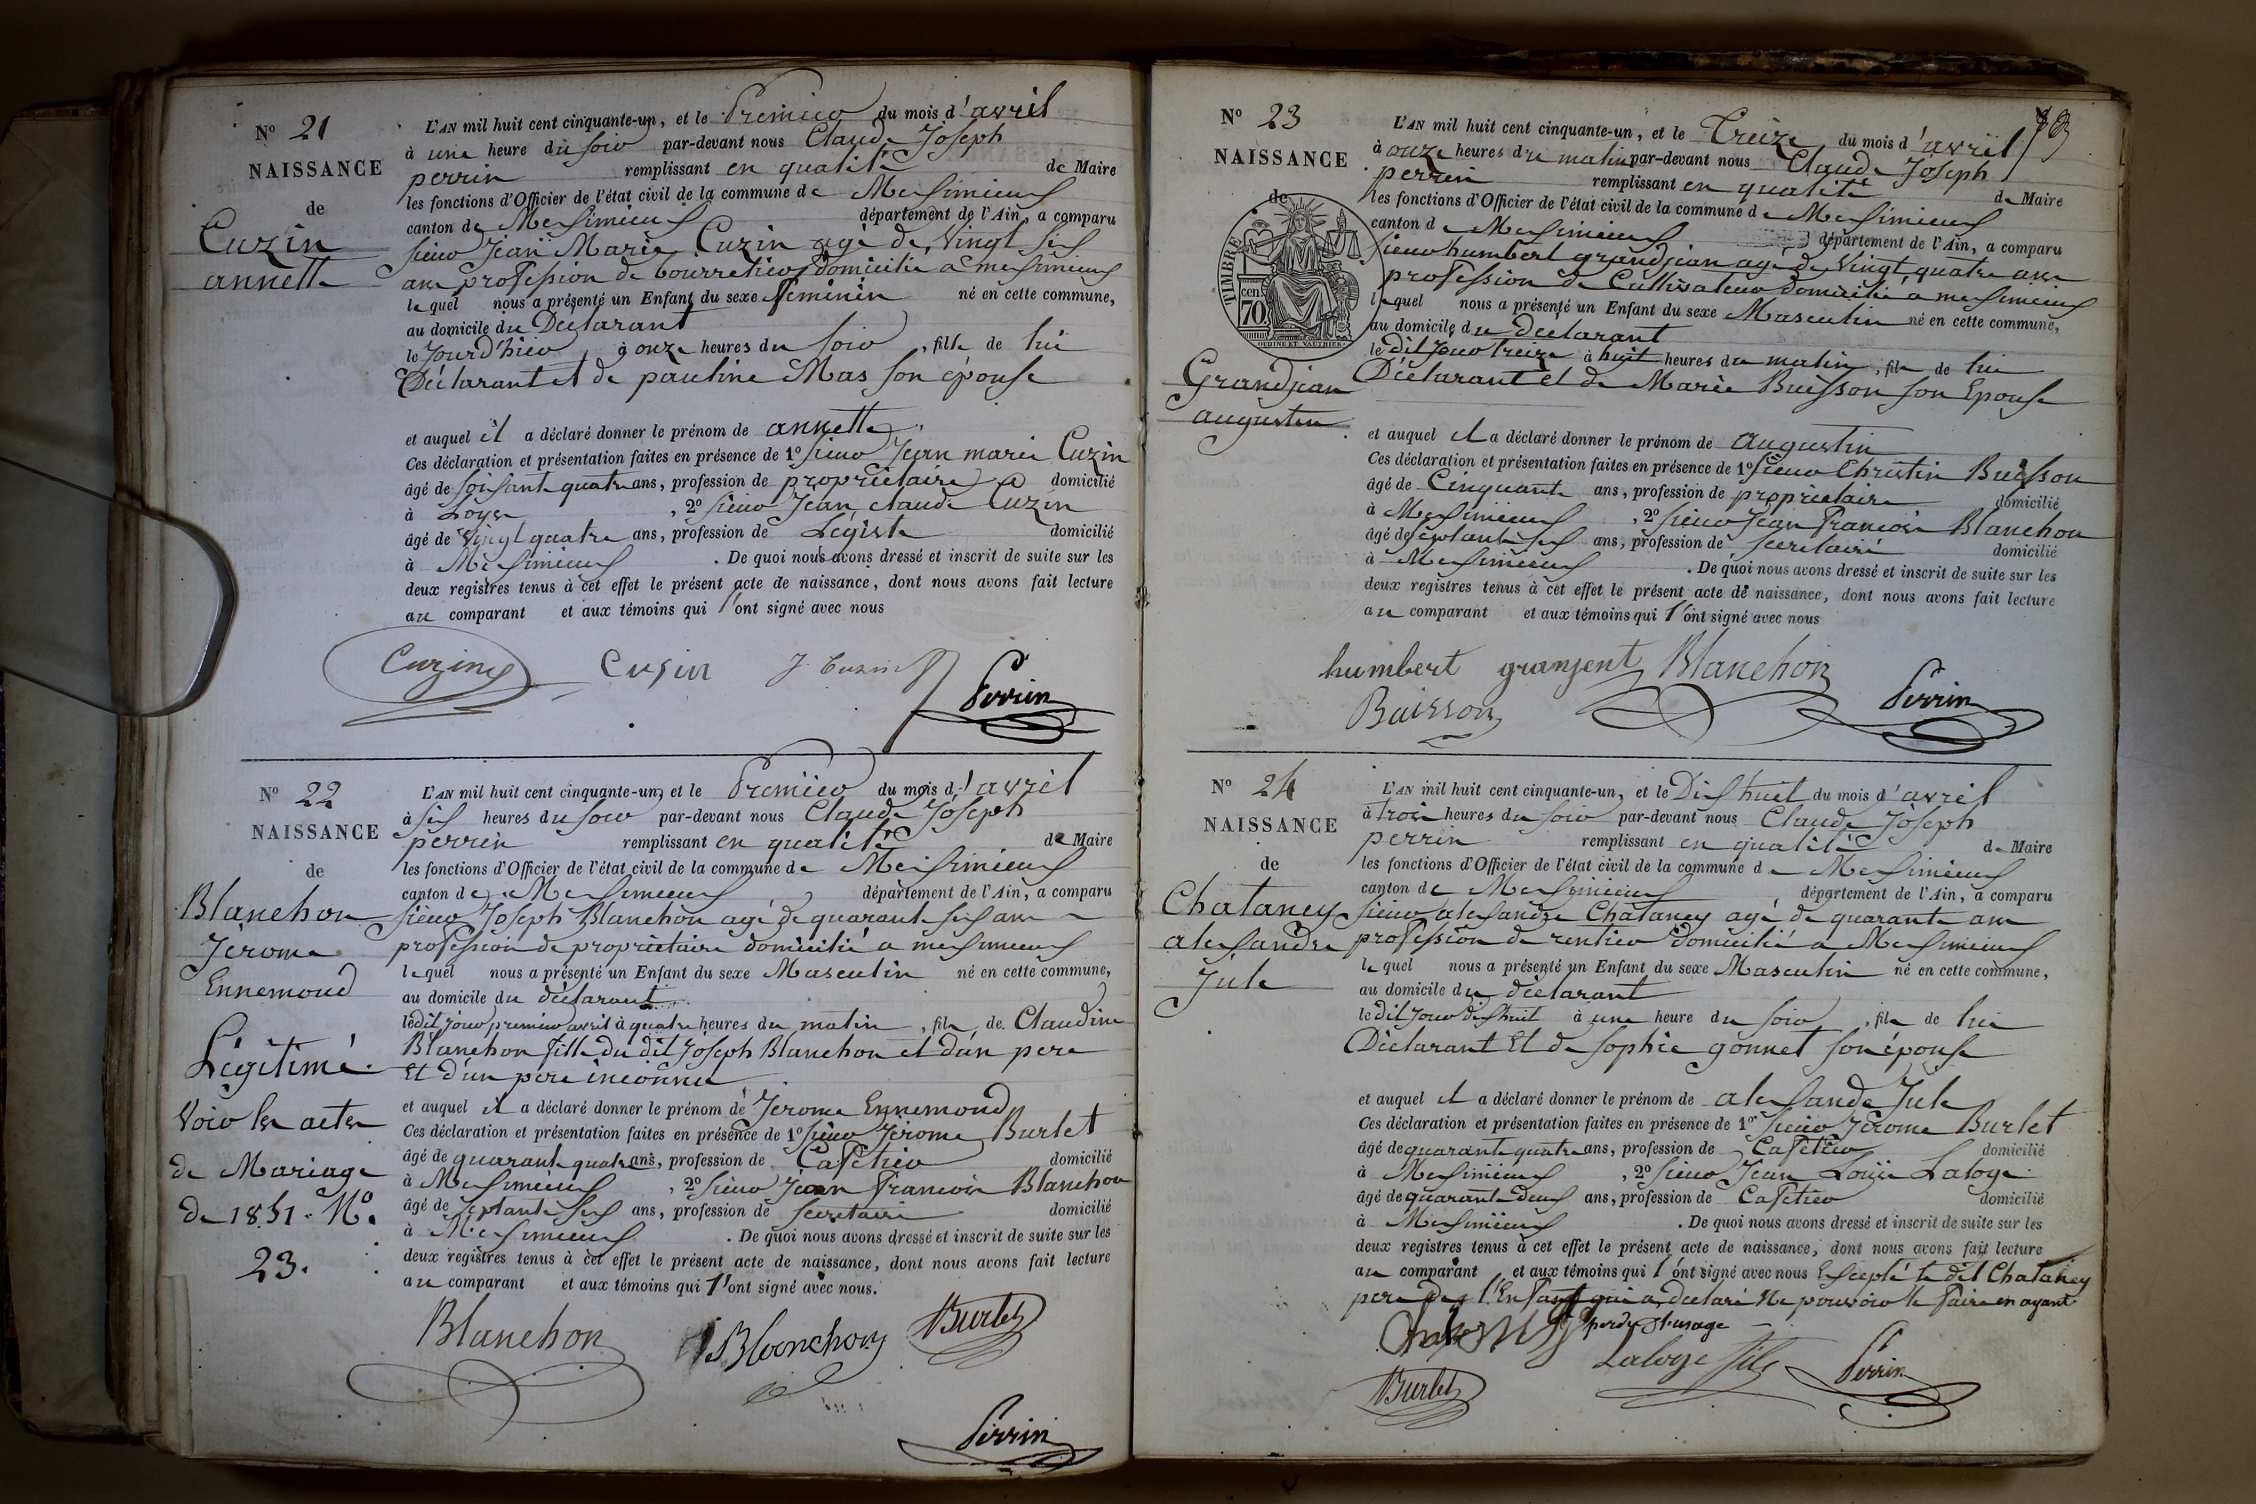 N° 21
NAISSANCE
de
Cuzin
annette
L'AN mil huit cent cinquante-un, et le Premier du mois d'avril
à une heure du soir par-devant nous Claude Joseph
perrin remplissant en qualité de Maire
les fonctions d'Officier de l'état civil de la commune de Meximieux
canton de Meximieux département de l'Ain, a comparu
sieur Jean Marie Cuzin agé de Vingt six
ans profession de bourrelier domicilié a meximieux
lequel nous a présenté un Enfant du sexe féminin né en cette commune,
au domicile du Déclarant
le Jourd'hier à onze heures du soir, fille de lui
Déclarant et de pauline Mas son épouse
et auquel il a déclaré donner le prénom de annette
Ces déclaration et présentation faites en présence de 1° sieur Jean marie Cuzin
âgé de soixante quatre ans, profession de propriétaire domicilié
à Loyes, 2° sieur Jean Claude Cuzin
âgé de Vingt quatre ans, profession de Légiste domicilié
à Meximieux. De quoi nous avons dressé et inscrit de suite sur les
deux registres tenus à cet effet le présent acte de naissance, dont nous avons fait lecture
au comparant et aux témoins qui l'ont signé avec nous
Cuzin Cusin J. Cuzin
Perrin
N° 22
NAISSANCE
de
Blanchon
Jérome
Ennemond
Légitimé.
Voir les actes
de Mariage
de 1851. N°.
23.
L'AN mil huit cent cinquante-un, et le Premier du mois d'avril
à six heures du soir par-devant nous Claude Joseph
perrin remplissant en qualité de Maire
les fonctions d'Officier de l'état civil de la commune de Meximieux
canton de Meximieux département de l'Ain, a comparu
sieur Joseph Blanchon agé de quarante six ans
profession de propriétaire domicilié a meximieux
lequel nous a présenté un Enfant du sexe Masculin né en cette commune,
au domicile du déclarant
ledit jour premier avril à quatre heures du matin, fils de Claudine
Blanchon fille du dit Joseph Blanchon et d'un pere
Et d'un pere inconnu
et auquel il a déclaré donner le prénom de Jerome Ennemond
Ces déclaration et présentation faites en présence de 1° sieur Jérome Burlet
âgé de quarante quatre ans, profession de Cafetier domicilié
à Meximieux, 2° sieur Jean francois Blanchon
âgé de septante six ans, profession de secretaire domicilié
à Meximieux. De quoi nous avons dressé et inscrit de suite sur les
deux registres tenus à cet effet le présent acte de naissance, dont nous avons fait lecture
au comparant et aux témoins qui l'ont signé avec nous.
Blanchon Blanchon Burlet
Perrin
N° 23
NAISSANCE
de
TIMBRE
70 cen
Grandjean
augustin
L'AN mil huit cent cinquante-un, et le Treize du mois d'avril
à onze heures du matin par-devant nous Claude Joseph
perrin remplissant en qualité de Maire
les fonctions d'Officier de l'état civil de la commune de Meximieux
canton de Meximieux département de l'Ain, a comparu
sieur humbert grandjean agé de Vingt quatre ans
profession de Cultivateur domicilié a meximieux
lequel nous a présenté un Enfant du sexe Masculin né en cette commune,
au domicile du déclarant
le dit jour treize à huit heures du matin, fils de lui
Déclarant et de Marie Buisson son Epouse
et auquel il a déclaré donner le prénom de augustin
Ces déclaration et présentation faites en présence de 1° sieur Christin Buisson
âgé de Cinquante ans, profession de propriétaire domicilié
à Meximieux, 2° sieur Jean francois Blanchon
âgé de septante six ans, profession de secretaire domicilié
à Meximieux. De quoi nous avons dressé et inscrit de suite sur les
deux registres tenus à cet effet le présent acte de naissance, dont nous avons fait lecture
au comparant et aux témoins qui l'ont signé avec nous
humbert granjent Blanchon
Buisson Perrin
N° 24
NAISSANCE
de
Chataney
alexandre
Jule
L'AN mil huit cent cinquante-un, et le Dix huit du mois d'avril
à trois heures du soir par-devant nous Claude Joseph
perrin remplissant en qualité de Maire
les fonctions d'Officier de l'état civil de la commune de Meximieux
canton de Meximieux département de l'Ain, a comparu
sieur alexandre Chataney agé de quarante ans
profession de rentier domicilié a Meximieux
lequel nous a présenté un Enfant du sexe Masculin né en cette commune,
au domicile du déclarant
le dit jour dix huit à une heure du soir, fils de lui
Déclarant Et de sophie gonnet son épouse
et auquel il a déclaré donner le prénom de alexandre Jule
Ces déclaration et présentation faites en présence de 1° sieur Jérome Burlet
âgé de quarante quatre ans, profession de Cafetier domicilié
à Meximieux, 2° sieur Jean Louis Laloge
âgé de quarante deux ans, profession de Cafetier domicilié
à Meximieux. De quoi nous avons dressé et inscrit de suite sur les
deux registres tenus à cet effet le présent acte de naissance, dont nous avons fait lecture
au comparant et aux témoins qui l'ont signé avec nous Excepté le dit Chataney
pere de l'Enfant qui a déclaré Ne pouvoir le faire en ayant
perdu l'usage
Laloge fils Perrin
Burlet